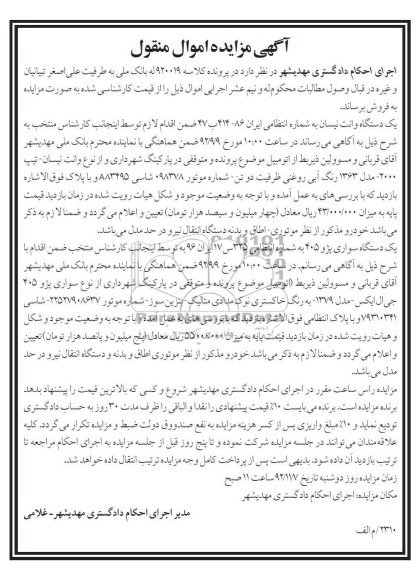 آگهی مزایده اموال منقول
اجرای احکام دادگستری مهدیشهر در نظر دارد در پرونده کلاسه ۹۲۰۰۱۹ له بانک ملی به طرفیت علی‌اصغر تبیانیان
و غیره در قبال وصول مطالبات محکوم‌له و نیم عشر اجرایی اموال ذیل را از قیمت کارشناسی شده به صورت مزایده
به فروش برساند.
یک دستگاه وانت نیسان به شماره انتظامی ایران ۸۶-۴۱۴ب۴۷ ضمن اقدام لازم توسط اینجانب کارشناس منتخب به
شرح ذیل به آگاهی می‌رساند در ساعت ۱۰:۰۰ مورخ ۹۲/۹/۹ ضمن هماهنگی با نماینده محترم بانک ملی مهدیشهر
آقای قربانی و مسوولین ذیربط از اتومبیل موضوع پرونده و متوقفی در پارکینگ شهرداری و از نوع وانت نیسان- تیپ
۲۰۰۰- مدل ۱۳۶۳ رنگ آبی روغنی ظرفیت دو تن- شماره موتور ۰۹۸۳۷۸ شاسی ۸۸۳۴۹۵ و با پلاک فوق‌الاشاره
بازدید که با بررسی‌های به عمل آمده و با توجه به وضعیت موجود و شکل هیات رویت شده در زمان بازدید قیمت
پایه به میزان ۴۳/۰۰۰/۰۰۰ ریال معادل (چهار میلیون و سیصد هزار تومان) تعیین و اعلام می‌گردد و ضمنا لازم به ذکر
می‌باشد خودرو مذکور از نظر موتوری- اطاق و بدنه دستگاه انتقال نیرو در حد مدل می‌باشد.
یک دستگاه سواری پژو ۴۰۵ به شماره انتظامی ۳۳۵س۱۷ ایران ۹۶ به توسط اینجانب کارشناس منتخب ضمن اقدام با
شرح ذیل به آگاهی می‌رسانم. در ساعت ۱۰:۰۰ مورخ ۹۲/۹/۹ ضمن هماهنگی با نماینده محترم بانک ملی مهدیشهر
آقای قربانی و مسوولین ذیربط (اتومبیل موضوع پرونده و متوقفی در پارکینگ شهرداری از نوع سواری پژو ۴۰۵
جی‌ال‌ایکس- مدل ۱۳۷۹- به رنگ خاکستری نوک‌مدادی متالیک- بنزین سوز- شماره موتور ۲۲۵۲۷۹۰۸۶۳۷- شاسی
۷۹۳۱۰۳۴۱ و با پلاک انتظامی فوق‌الاشاره بازدید که با بررسی‌های به عمل آمده و با توجه به وضعیت موجود و شکل
و هیات رویت شده در زمان بازدید قیمت پایه به میزان ۵۵/۰۰۰/۰۰۰ ریال معادل (پنج میلیون و پانصد هزار تومان) تعیین
و اعلام می‌گردد و ضمنا لازم به ذکر می‌باشد خودرو مذکور از نظر موتوری اطاق و بدنه و دستگاه انتقال نیرو در حد
مدل می‌باشد.
مزایده راس ساعت مقرر در اجرای احکام دادگستری مهدیشهر شروع و کسی که بالاترین قیمت را پیشنهاد بدهد
برنده مزایده است. برنده می‌بایست ۱۰٪ قیمت پیشنهادی را نقدا و الباقی را ظرف مدت ۳۰ روز به حساب دادگستری
تودیع نماید و ۱۰٪ مبلغ واریزی پس از کسر هزینه مزایده به نفع صندوق دولت ضبط و مزایده تکرار می‌گردد. کلیه
علاقه‌مندان می‌توانند در جلسه مزایده شرکت نموده و تا پنج روز قبل از جلسه مزایده به اجرای احکام مراجعه تا
ترتیب بازدید آن داده شود. بدیهی است پس از پرداخت کامل وجه مزایده ترتیب انتقال داده خواهد شد.
زمان مزایده روز دوشنبه تاریخ ۹۲/۱۱/۷ ساعت ۱۱ صبح
مکان مزایده: اجرای احکام دادگستری مهدیشهر
مدیر اجرای احکام دادگستری مهدیشهر- غلامی
۲۳۱۰/م الف